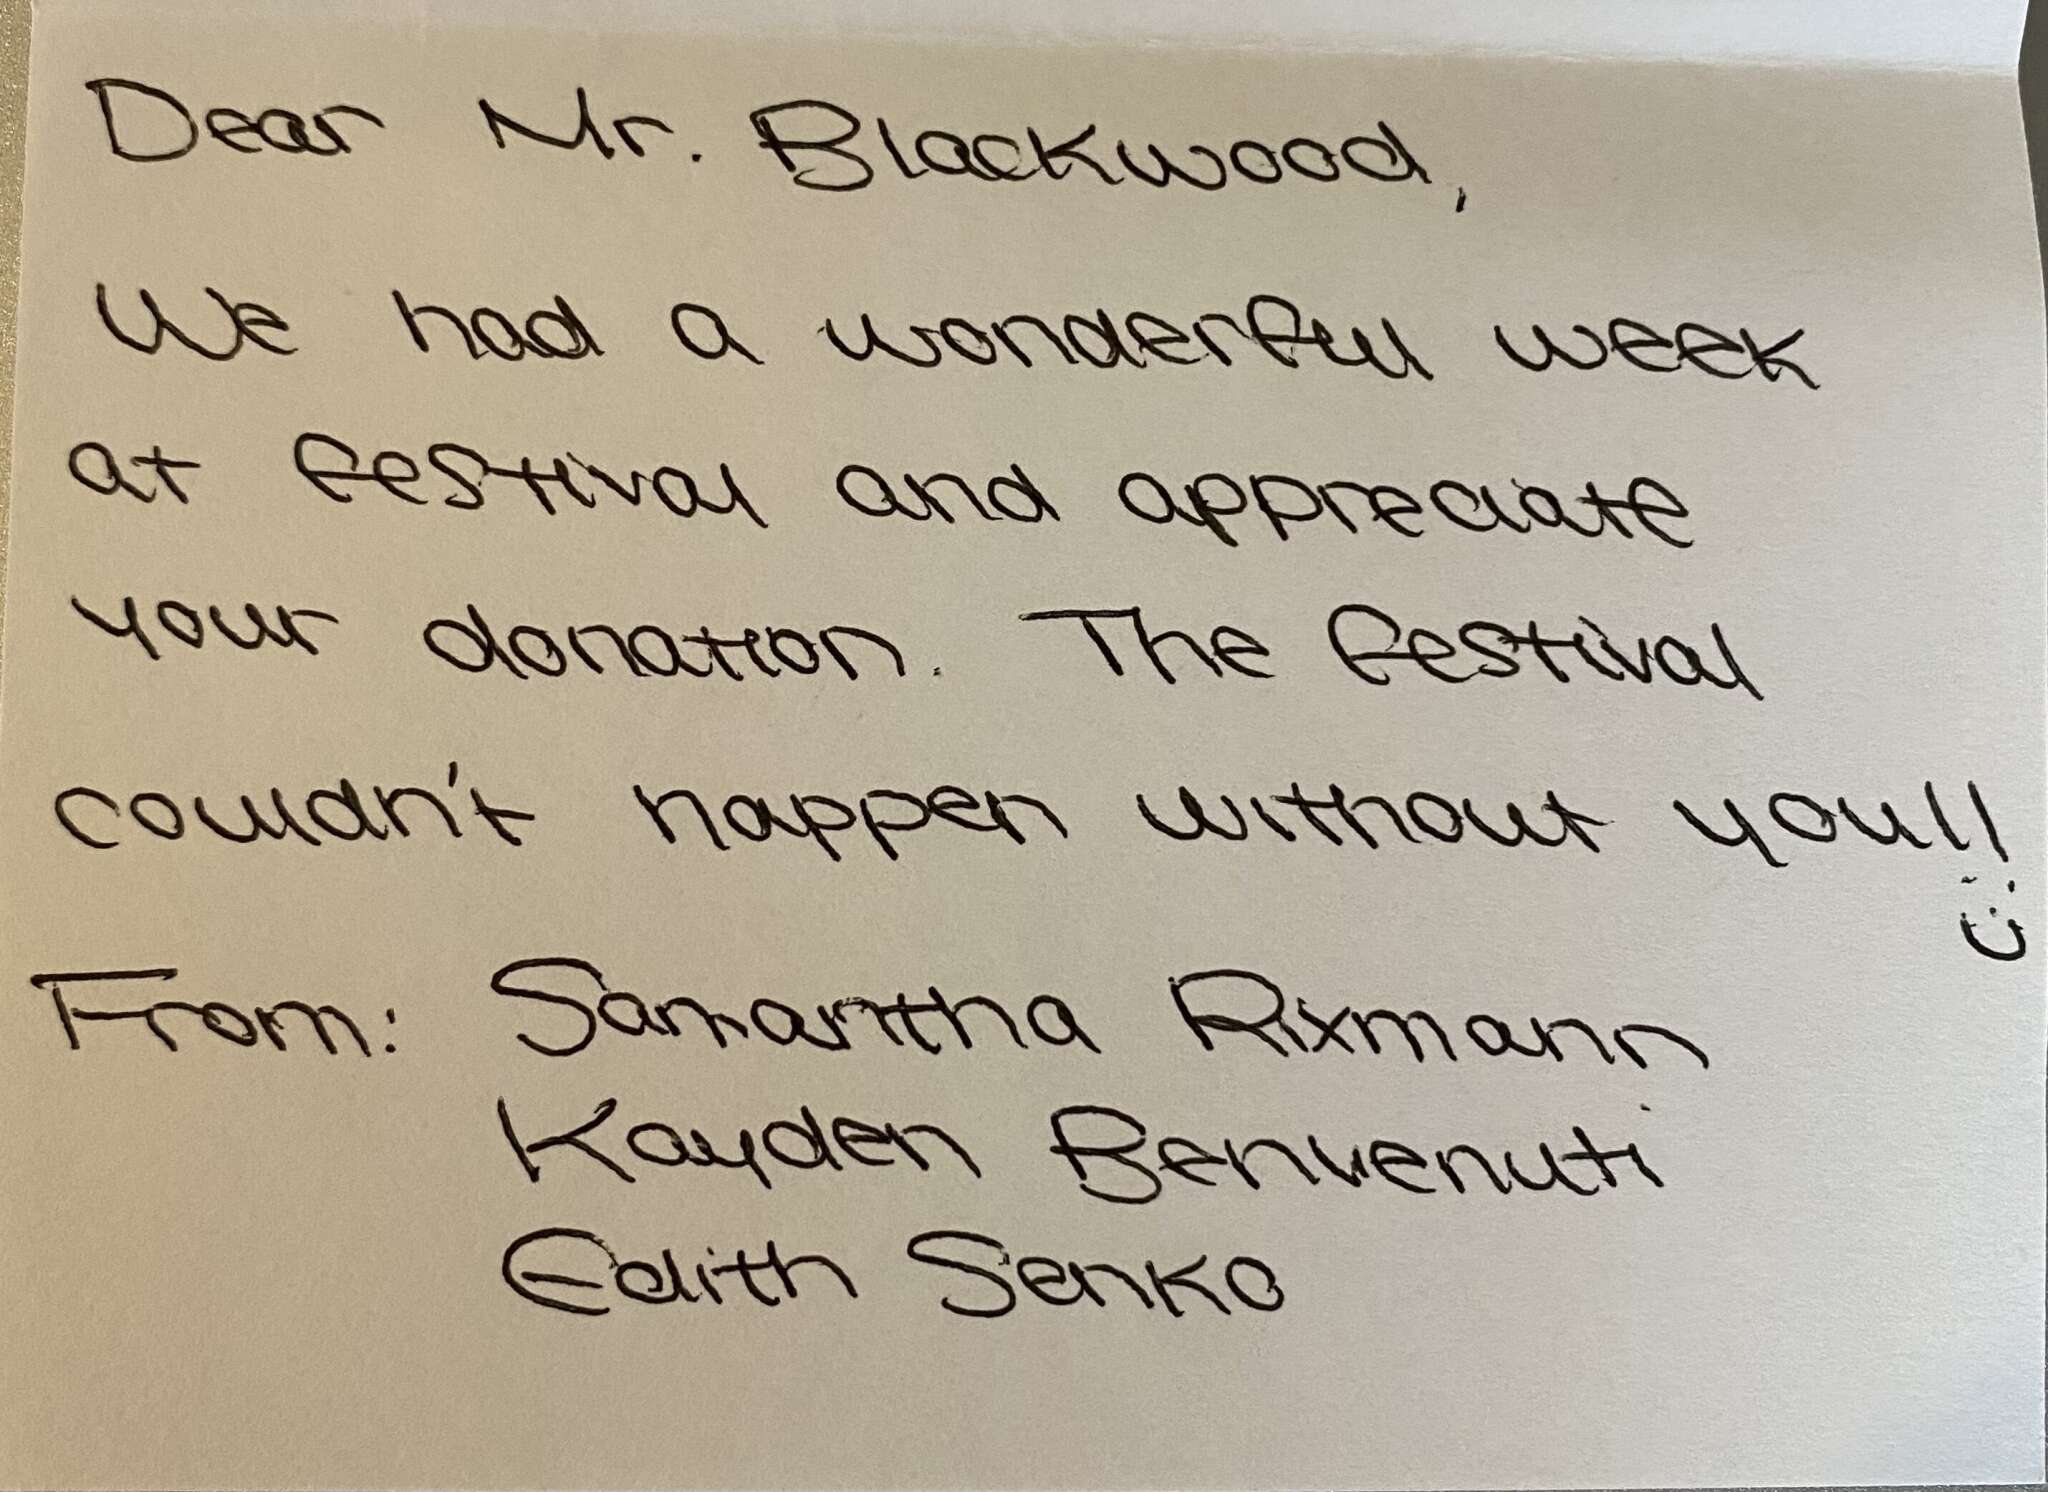 Dear Mr. Blackwood,
We had a wonderful week
at festival and appreciate
your donation. The festival
couldn't happen without you!!
From: Samantha Rixmann
Kayden Benvenuti
Edith Senko